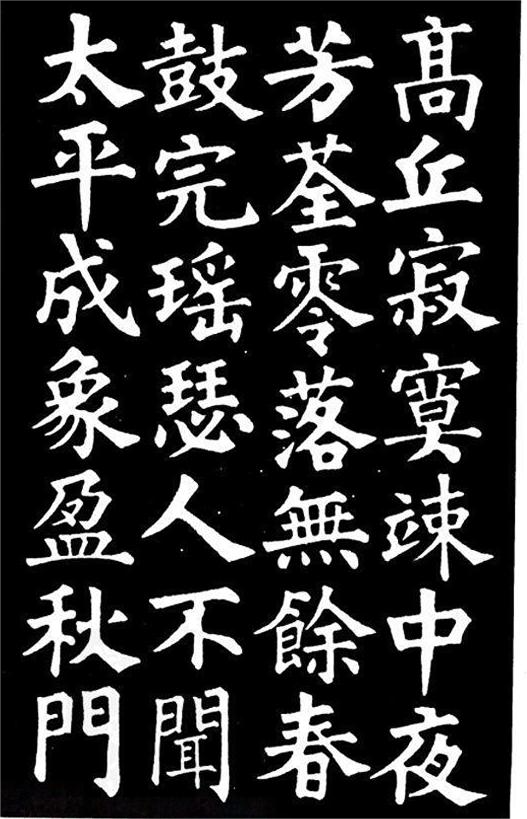 高丘寂寞竦中夜
芳荃零落無餘春
鼓完瑶瑟人不聞
太平成象盈秋門